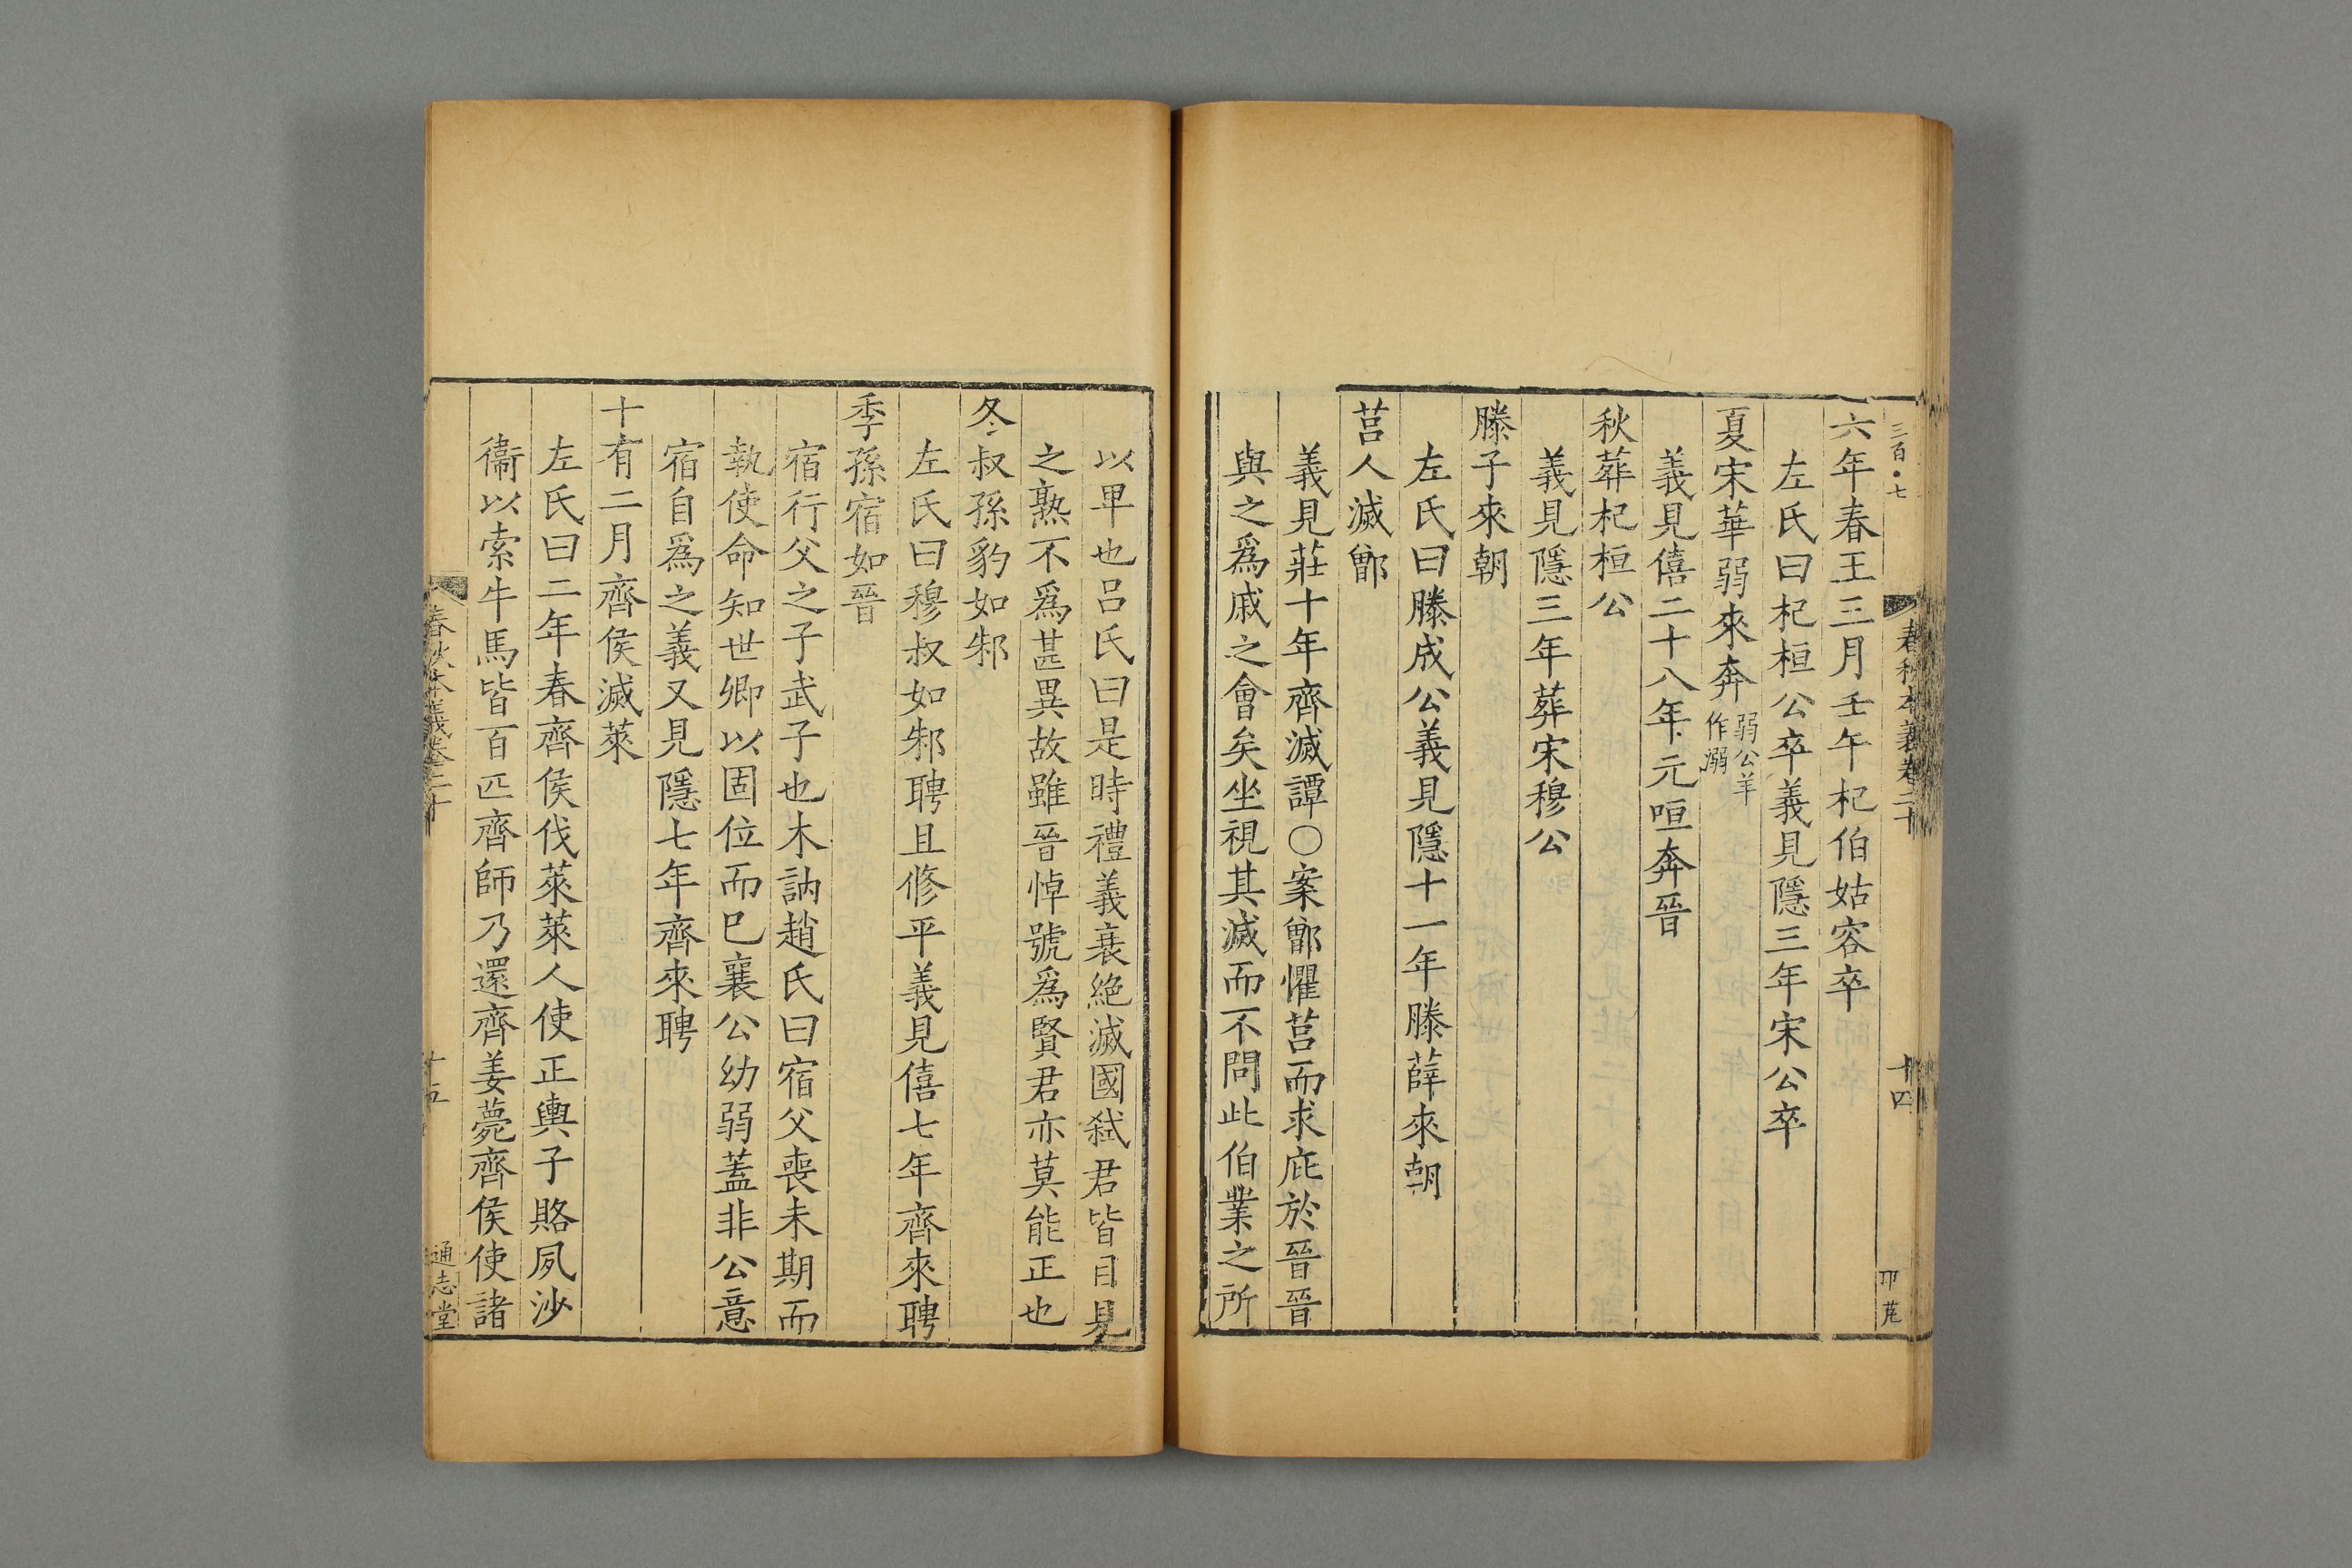 三百·七
春秋本義卷二十
十四
六年春王三月壬午杞伯姑容卒
左氏曰杞桓公卒義見隱三年宋公卒
夏宋華弱來奔弱公羊作溺
義見僖二十八年元咺奔晉
秋葬杞桓公
義見隱三年葬宋穆公
滕子來朝
左氏曰滕成公義見隱十一年滕薛來朝
莒人滅鄫
義見莊十年齊滅譚○案鄫懼莒而求庇於晉晉
與之爲戚之會矣坐視其滅而不問此伯業之所
以卑也呂氏曰是時禮義衰絶滅國弑君皆目見
之熟不爲甚異故雖晉悼號爲賢君亦莫能正也
冬叔孫豹如邾
左氏曰穆叔如邾聘且修平義見僖七年齊來聘
季孫宿如晉
宿行父之子武子也木訥趙氏曰宿父喪未期而
執使命知世卿以固位而已襄公幼弱蓋非公意
宿自爲之義又見隱七年齊來聘
十有二月齊侯滅萊
左氏曰二年春齊侯伐萊萊人使正輿子賂夙沙
衞以索牛馬皆百匹齊師乃還齊姜薨齊侯使諸
春秋本義卷二十
十五
通志堂